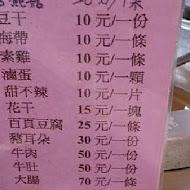 豆干 10 元/一份
海帶 10 元/一條
素雞 10 元/一條
滷蛋 10 元/一顆
甜不辣 10 元/一片
花干 15 元/一塊
百頁豆腐 25 元/一條
豬耳朵 30 元/一份
牛肉 50 元/一份
牛肚 50 元/一份
大腸 70 元/一條